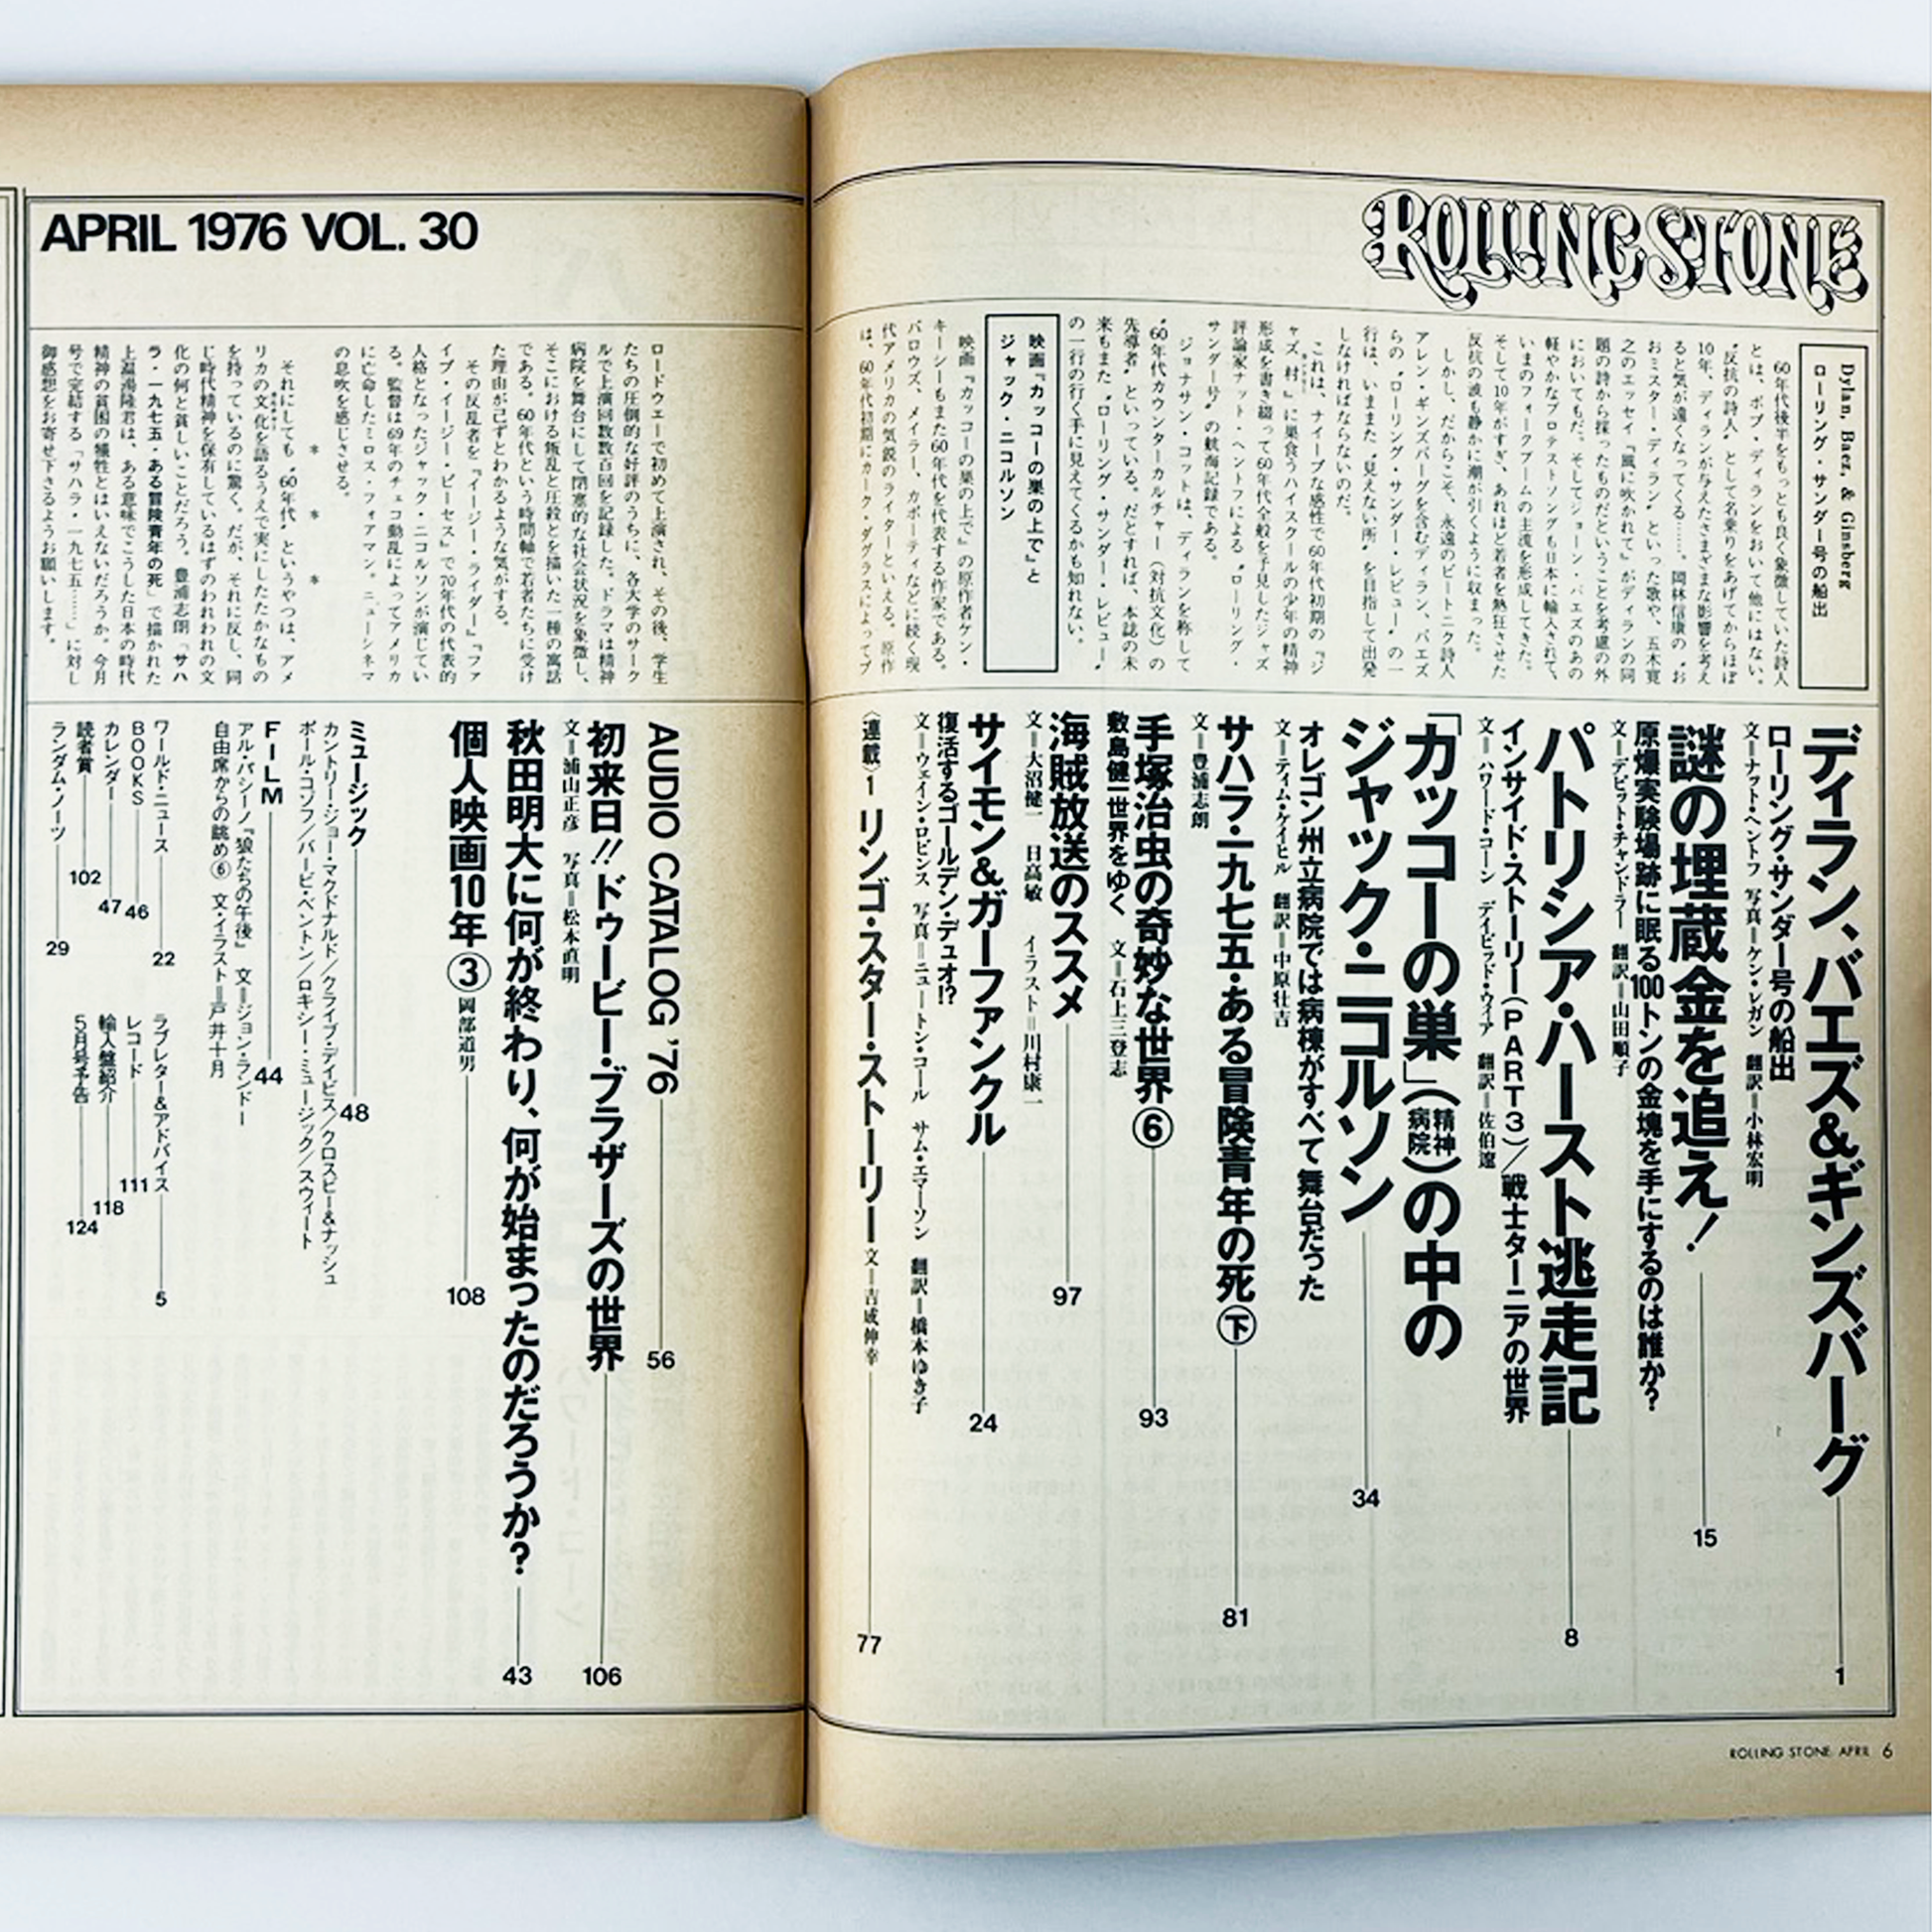 ROLLING STONE
Dylan, Baez, & Ginsberg
ローリング・サンダー号の船出
60年代後半をもっとも良く象徴していた詩人
とは、ボブ・ディランをおいて他にはない。
〝反抗の詩人〟として名乗りをあげてからほぼ
10年、ディランが与えたさまざまな影響を考え
ると気が遠くなってくる……。岡林信康の〝お
おミスター・ディラン〟といった歌や、五木寛
之のエッセイ『風に吹かれて』がディランの同
題の詩から採ったものだということを考慮の外
においてもだ。そしてジョーン・バエズのあの
軽やかなプロテストソングも日本に輸入されて、
いまのフォークブームの主流を形成してきた。
そして10年がすぎ、あれほど若者を熱狂させた
反抗の波も静かに潮が引くように収まった。
しかし、だからこそ、永遠のビートニク詩人
アレン・ギンズバーグを含むディラン、バエズ
らの〝ローリング・サンダー・レビュー〟の一
行は、いままた〝見えない所〟を目指して出発
しなければならないのだ。
これは、ナイーブな感性で60年代初期の『ジ
ャズ・村』に巣食うハイスクールの少年の精神
形成を書き綴って60年代全般を予見したジャズ
評論家ナット・ヘントフによる〝ローリング・
サンダー号〟の航海記録である。
ジョナサン・コットは、ディランを称して
〝60年代カウンターカルチャー（対抗文化）の
先導者〟といっている。だとすれば、本誌の未
来もまた〝ローリング・サンダー・レビュー〟
の一行の行く手に見えてくるかも知れない。
映画『カッコーの巣の上で』と
ジャック・ニコルソン
映画『カッコーの巣の上で』の原作者ケン・
キーシーもまた60年代を代表する作家である。
バロウズ、メイラー、カポーティなどに続く現
代アメリカの気鋭のライターといえる。原作
は、60年代初期にカーク・ダグラスによってブ
ディラン、バエズ&ギンズバーグ 1
ローリング・サンダー号の船出
文＝ナット・ヘントフ 写真＝ケン・レガン 翻訳＝小林宏明
謎の埋蔵金を追え！ 15
原爆実験場跡に眠る100トンの金塊を手にするのは誰か？
文＝デビット・チャンドラー 翻訳＝山田順子
パトリシア・ハースト逃走記 8
インサイド・ストーリー（PART3）／戦士ターニアの世界
文＝ハワード・コーン デイビッド・ウィア 翻訳＝佐伯遼
「カッコーの巣」（精神病院）の中の
ジャック・ニコルソン 34
オレゴン州立病院では病棟がすべて舞台だった
文＝ティム・ケイヒル 翻訳＝中原壮吉
サハラ・一九七五・ある冒険青年の死㊦ 81
文＝豊浦志朗
手塚治虫の奇妙な世界⑥ 93
敷島健一世界をゆく 文＝石上三登志
海賊放送のススメ 97
文＝大沼健一 日高敏 イラスト＝川村康一
サイモン&ガーファンクル 24
復活するゴールデン・デュオ!?
文＝ウェイン・ロビンス 写真＝ニュートン・コール サム・エマーソン 翻訳＝橋本ゆき子
〈連載〉1 リンゴ・スター・ストーリー 文＝吉成伸幸 77
ROLLING STONE APRIL 6
APRIL 1976 VOL. 30
ロードウェーで初めて上演され、その後、学生
たちの圧倒的な好評のうちに、各大学のサーク
ルで上演回数数百回を記録した。ドラマは精神
病院を舞台にして閉塞的な社会状況を象徴し、
そこにおける叛乱と圧殺とを描いた一種の寓話
である。60年代という時間軸で若者たちに受け
た理由が己ずとわかるような気がする。
その反乱者を『イージー・ライダー』『ファ
イブ・イージー・ピーセス』で70年代の代表的
人格となったジャック・ニコルソンが演じてい
る。監督は69年のチェコ動乱によってアメリカ
に亡命したミロス・フォアマン。ニューシネマ
の息吹を感じさせる。
＊ ＊ ＊
それにしても〝60年代〟というやつは、アメ
リカの文化を語るうえで実にしたたかなもの
を持っているのに驚く。だが、それに反し、同
じ時代精神を保有しているはずのわれわれの文
化の何と貧しいことだろう。豊浦志朗「サハ
ラ・一九七五・ある冒険青年の死」で描かれた
上温湯隆君は、ある意味でこうした日本の時代
精神の貧困の犠牲とはいえないだろうか。今月
号で完結する「サハラ・一九七五……」に対し
御感想をお寄せ下さるようお願いします。
AUDIO CATALOG '76 56
初来日!! ドゥービー・ブラザーズの世界 106
文＝浦山正彦 写真＝松本直明
秋田明大に何が終わり、何が始まったのだろうか？ 43
個人映画10年③ 岡部道男 108
ミュージック 48
カントリー・ジョー・マクドナルド／クライブ・デイビス／クロスビー&ナッシュ
ポール・コソフ／バービ・ベントン／ロキシー・ミュージック／スウィート
FILM 44
アル・パシーノ『狼たちの午後』 文＝ジョン・ランドー
自由席からの眺め⑥ 文・イラスト＝戸井十月
ワールド・ニュース 22
BOOKS 46
カレンダー 47
読者賞 102
ランダム・ノーツ 29
ラブレター&アドバイス 5
レコード 111
輸入盤紹介 118
5月号予告 124